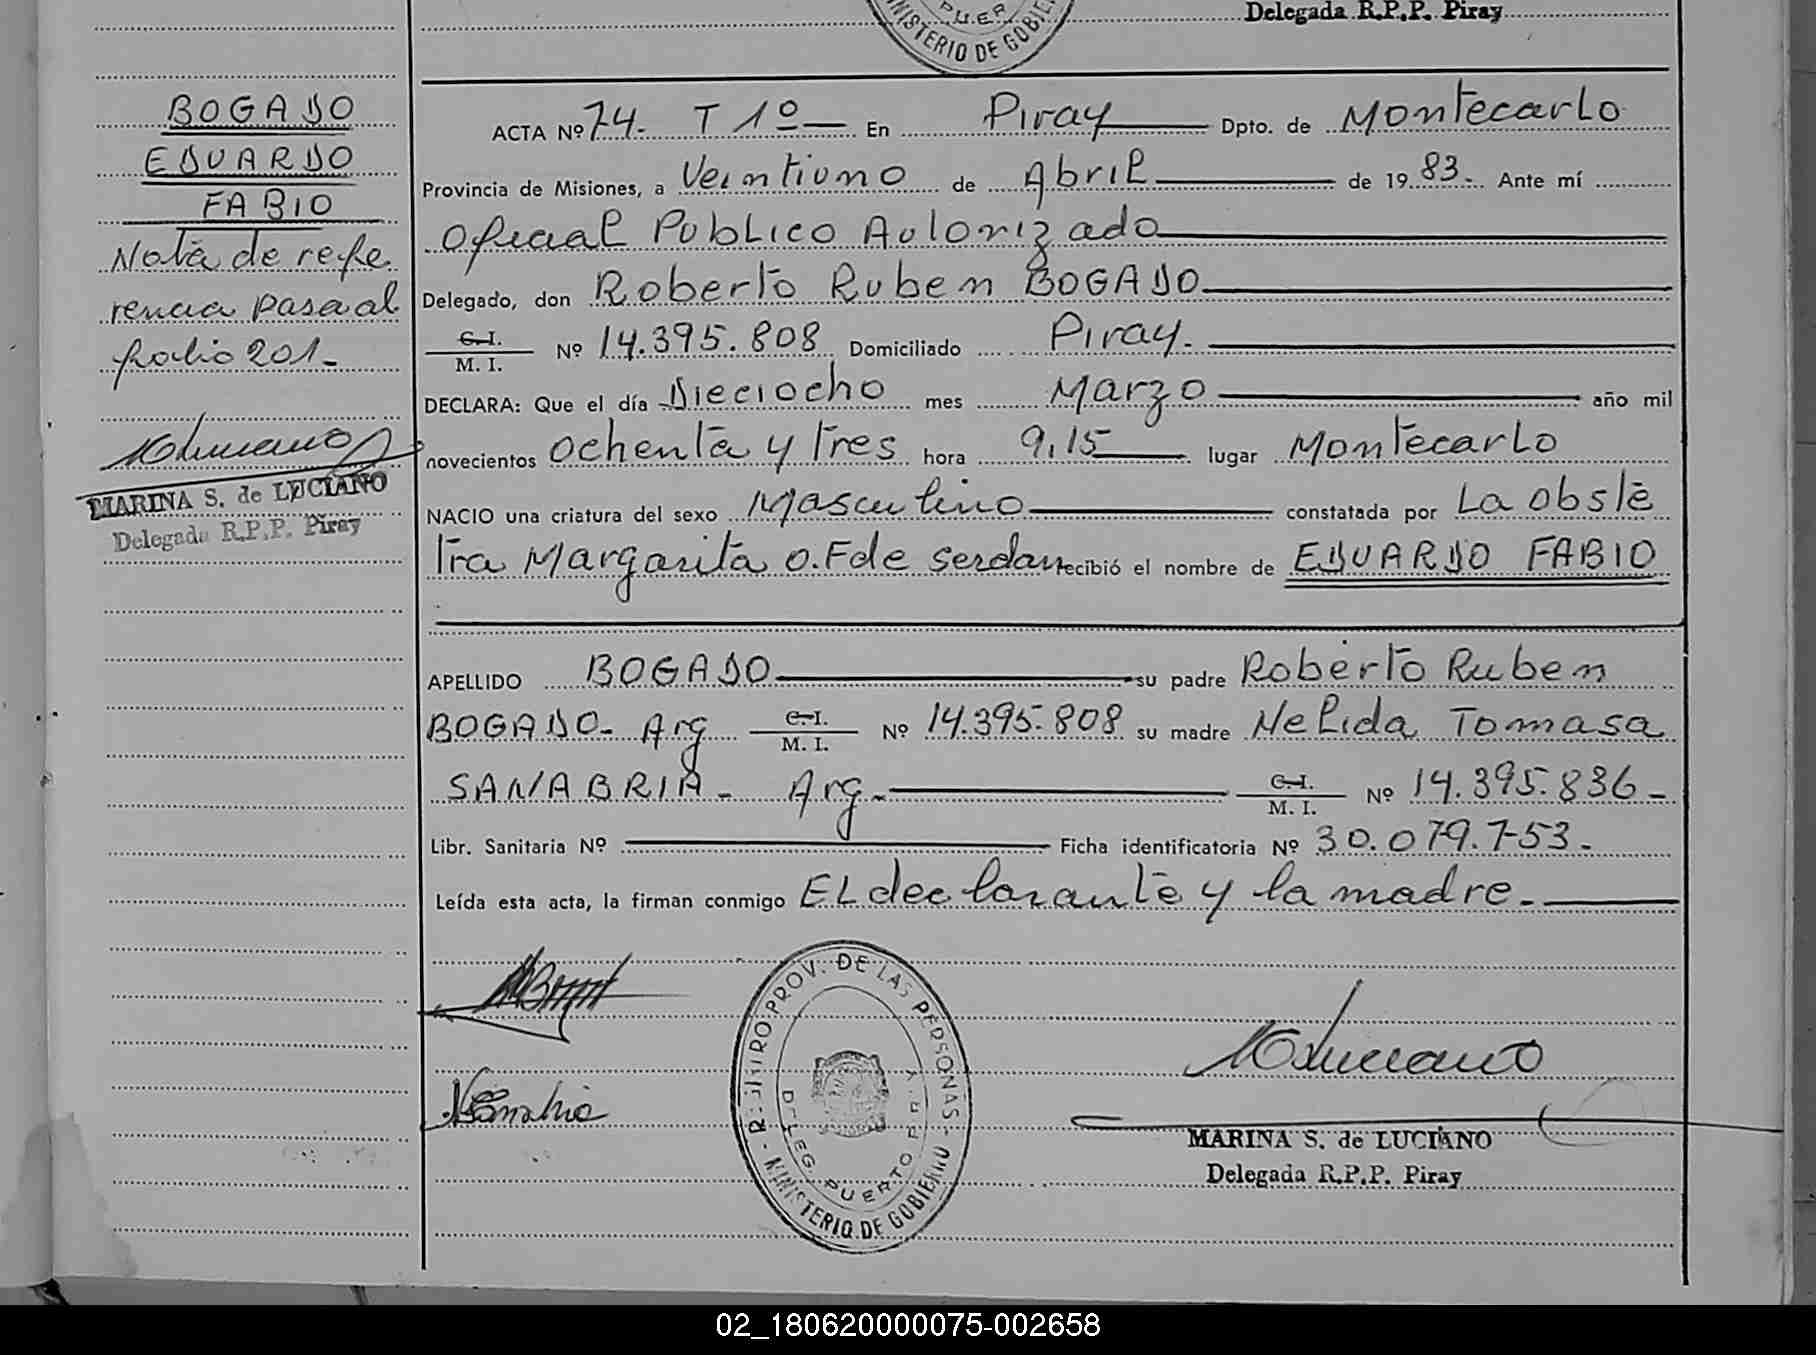 Delegada R.P.P. Piray
PUER
MINISTERIO DE GOBIER
BOGADO
EDUARDO
FABIO
Nota de refe
rencia pasa al
folio 201-
MARINA S. de LUCIANO
Delegada R.P.P. Piray
ACTA Nº 74. T 1º En Piray Dpto. de Montecarlo
Provincia de Misiones, a Veintiuno de Abril de 1983. Ante mí
Oficial Publico Autorizado
Delegado, don Roberto Ruben BOGADO
C.I. M.I. Nº 14.395.808 Domiciliado Piray.
DECLARA: Que el día Dieciocho mes Marzo año mil
novecientos ochenta y tres hora 9,15 lugar Montecarlo
NACIO una criatura del sexo Masculino constatada por La obste
tra Margarita O. F de Serdan recibió el nombre de EDUARDO FABIO
APELLIDO BOGADO su padre Roberto Ruben
BOGADO- Arg C.I. M.I. Nº 14.395.808 su madre Nelida Tomasa
SANABRIA- Arg. C.I. M.I. Nº 14.395.836-
Libr. Sanitaria Nº Ficha identificatoria Nº 30.079.753.
Leída esta acta, la firman conmigo El declarante y la madre.
REGISTRO PROV. DE LAS PERSONAS
DELEG. PUERTO PIRAY
MINISTERIO DE GOBIERNO
MARINA S. de LUCIANO
Delegada R.P.P. Piray
02_180620000075-002658